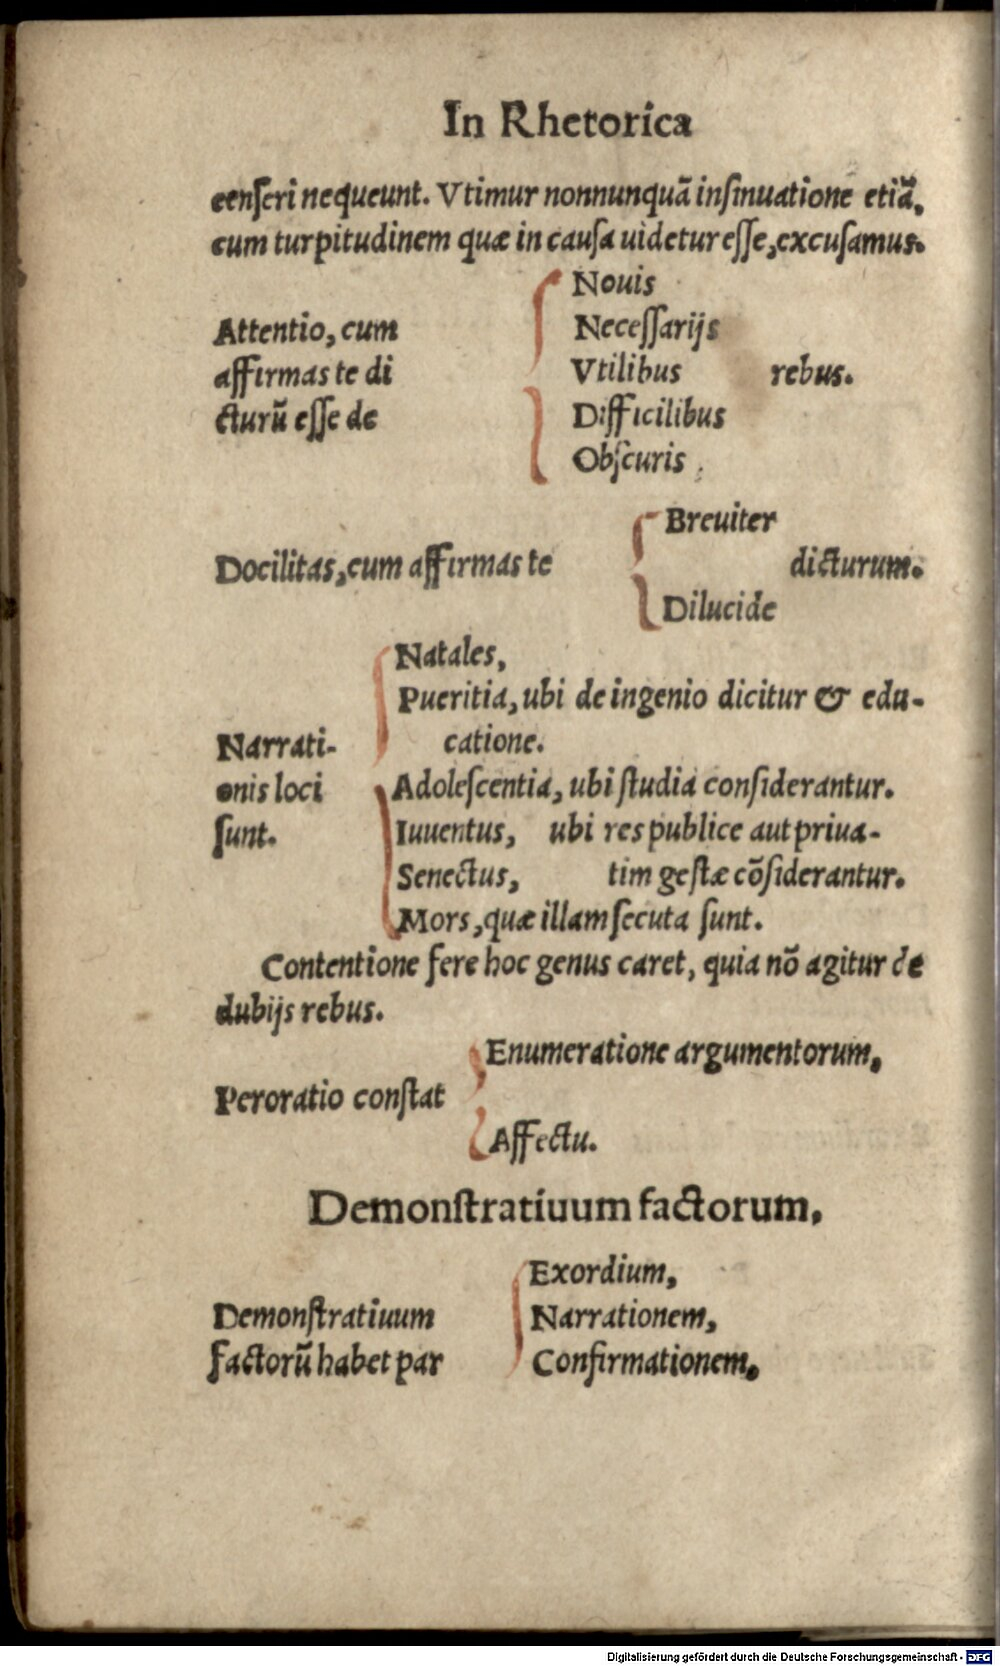 In Rhetorica
cenſeri nequeunt. Vtimur nonnunquā inſinuatione etiā,
cum turpitudinem quæ in cauſa uidetur eſſe, excuſamus.
Attentio, cum
affirmas te di
cturū eſſe de
Nouis
Neceſſarijs
Vtilibus rebus.
Difficilibus
Obſcuris
Docilitas, cum affirmas te
Breuiter
dicturum.
Dilucide
Narrati-
onis loci
ſunt.
Natales,
Pueritia, ubi de ingenio dicitur & edu-
catione.
Adoleſcentia, ubi ſtudia conſiderantur.
Iuuentus, ubi res publice aut priua-
Senectus, tim geſtæ cōſiderantur.
Mors, quæ illam ſecuta ſunt.
Contentione fere hoc genus caret, quia nō agitur de
dubijs rebus.
Peroratio conſtat
Enumeratione argumentorum,
Affectu.
Demonſtratiuum factorum,
Demonſtratiuum
factorū habet par
Exordium,
Narrationem,
Confirmationem,
Digitalisierung gefördert durch die Deutsche Forschungsgemeinschaft - DFG